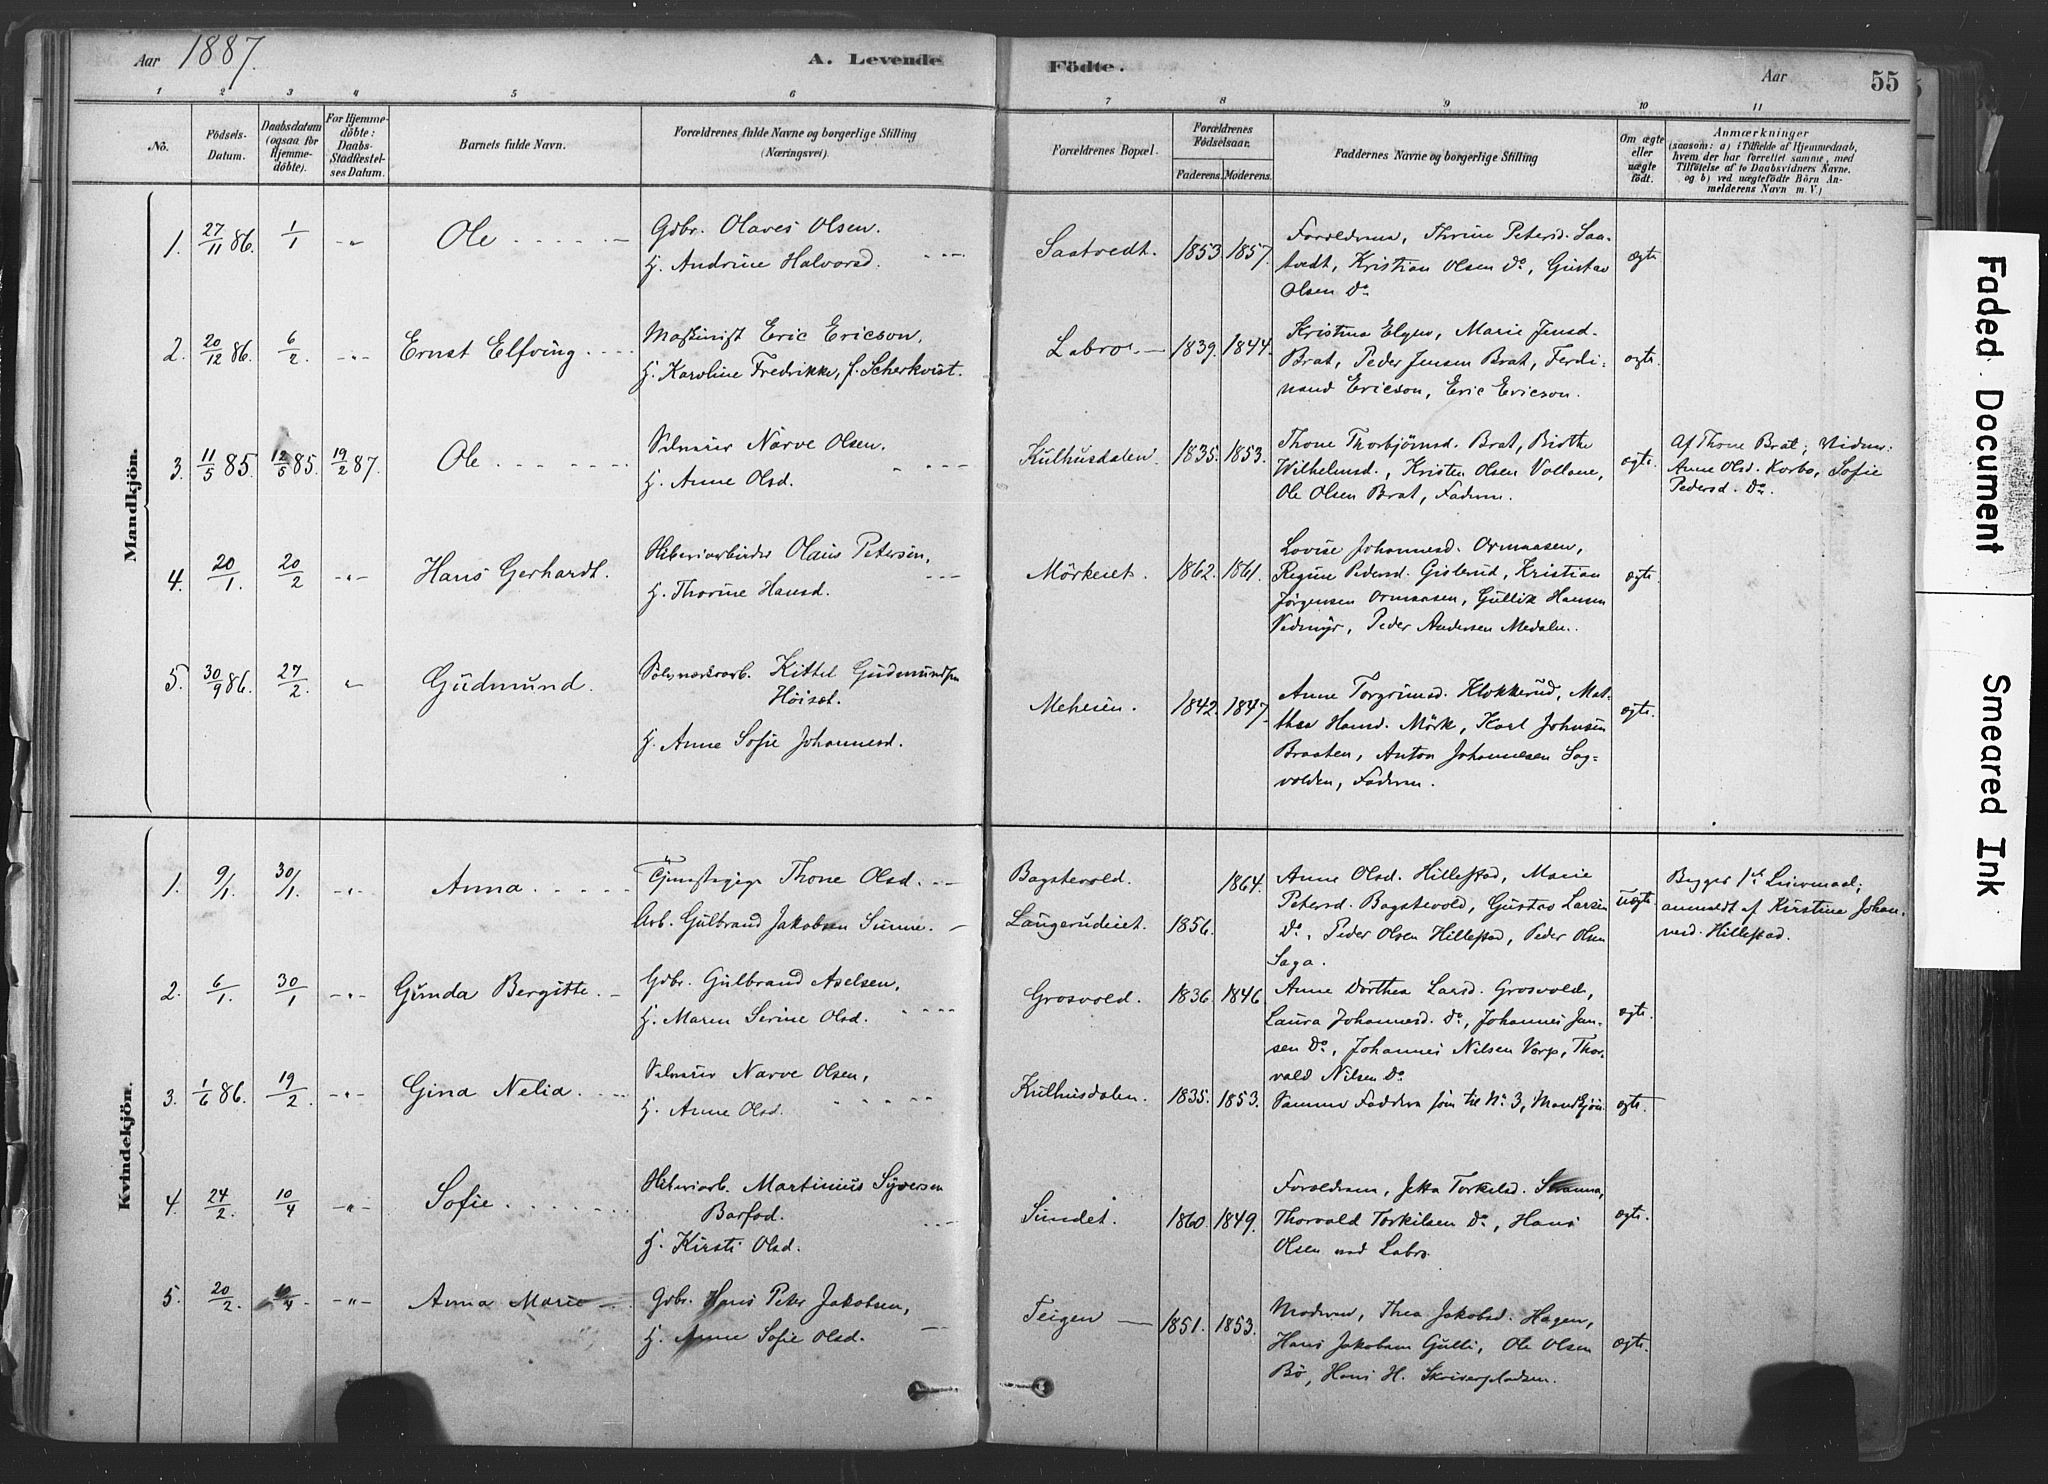 Aar 1887.
A. Levende Födte.
Aar
55
1 2 3 4 5 6 7 8 9 10 11
No.
Födsels-Datum.
Daabsdatum (ogsaa for Hjemmedöbte).
For Hjemmedöbte: Daabs-Stadfæstelses Datum.
Barnets fulde Navn.
Forældrenes fulde Navne og borgerlige Stilling (Næringsvei).
Forældrenes Bopæl.
Forældrenes Födselsaar.
Faderens. Moderens.
Faddernes Navne og borgerlige Stilling
Om ægte eller uægte födt.
Anmærkninger
(saasom: a) i Tilfælde af Hjemmedaab, hvem der har forrettet samme, med Tilföielse af to Daabsvidners Navne. og b) ved uægtefödte Börn Anmelderens Navn m. V.)
Mandkjön.
1. 27/11 86. 1/1 -"- Ole
Gdbr. Olaves Olsen.
H. Andrine Halvorsd.
Saatvedt. 1853. 1857.
Forældrene, Thrine Petersd. Saa-
tvedt, Kristian Olsen Do, Gustav
Olsen Do
ægte
2. 20/12 86. 6/2 -"- Ernst Elfving
Maskinist Eric Ericson,
H. Karoline Fredrikke, f. Scherkvist.
Labro. 1839. 1844.
Kristina Marie Jensd.
Brat, Peder Jensen Brat, Ferdi-
nand Ericson, Eric Ericson.
ægte.
3. 11/5 85. 12/5 85. 19/2 87. Ole
Narve Olsen.
H. Anne Olsd.
Kulhusdalen. 1835. 1853.
Thone Thorbjörnsd. Brat, Birthe
Wilhelmsd., Kristen Olsen Vollane,
Ole Olsen Brat, Faderen.
ægte.
Af Thone Brat; Vidner:
Anne Olsd. Korbo, Sofie
Pedersd. Do.
4. 20/1. 20/2 -"- Hans Gerhardt.
Sliberiarbeider Olaus Petersen,
H. Thorine Hansd.
Mörkeiet. 1862. 1861.
Lovise Johannesd. Ormaasen,
Regine Pedersd. Gislerud, Kristian
Jörgensen Ormaasen, Gullik Hansen
Vedmyr, Peder Andersen Medalen.
ægte
5. 30/9 86. 27/2 " Gudmund.
Sölvværksarb. Kittel Gudmundsen
Höiset.
H. Anne Sofie Johannesd.
Meheien. 1842. 1847.
Anne Torgrimsd. Klokkerud, Mat-
thea Hansd. Mörk, Karl Johnsen
Braaten, Anton Johannesen Sag-
volden, Faderen.
ægte.
Kvindekjön.
1. 9/1. 30/1. -"- Anna
Tjenestepige Thone Olsd.
Arb. Gulbrand Jakobsen Sunne.
Bagstevold. 1864.
Laugerudeiet. 1856.
Anne Olsd. Hillestad, Marie
Petersd. Bagstevold, Gustav Larsen
Do, Peder Olsen Hillestad, Peder Olsen
Saga.
uægte.
Begges 1ste Leiermaal;
anmeldt af Kirstine Johan-
nesd. Hillestad.
2. 6/1. 30/1 -"- Gunda Bergitte.
Gdbr. Gulbrand Axelsen,
H. Maren Serine Olsd.
Grosvold. 1836. 1846
Anne Dorthea Larsd. Grosvold,
Laura Johannesd. Do, Johannes Jan-
sen Do, Johannes Nilsen Vorp, Thor-
vald Nilsen Do
ægte.
3. 1/6 86. 19/2 -"- Gina Nelia
Narve Olsen,
H. Anne Olsd.
Kulhusdalen. 1835. 1853.
Samme Faddere som til No 3, Mandkjön.
ægte.
4. 24/2. 10/4 -"- Sofie
Sliberiarb. Martinius Syversen
Barfod.
H. Kirsti Olsd.
Sundet. 1860. 1849.
Forældrene, Jetta Torkilsd.
Thorvald Torkilsen Do, Hans
Olsen ved Labro.
ægte.
5. 20/2. 10/4. -"- Anna Marie
Gdbr. Hans Peter Jakobsen,
H. Anne Sofie Olsd.
Teigen 1851. 1853.
Moderen, Thea Jakobsd. Hagen,
Hans Jakobsen Gulli, Ole Olsen
Bö, Hans H. Skriverpladsen.
ægte.
Faded Document
Smeared Ink